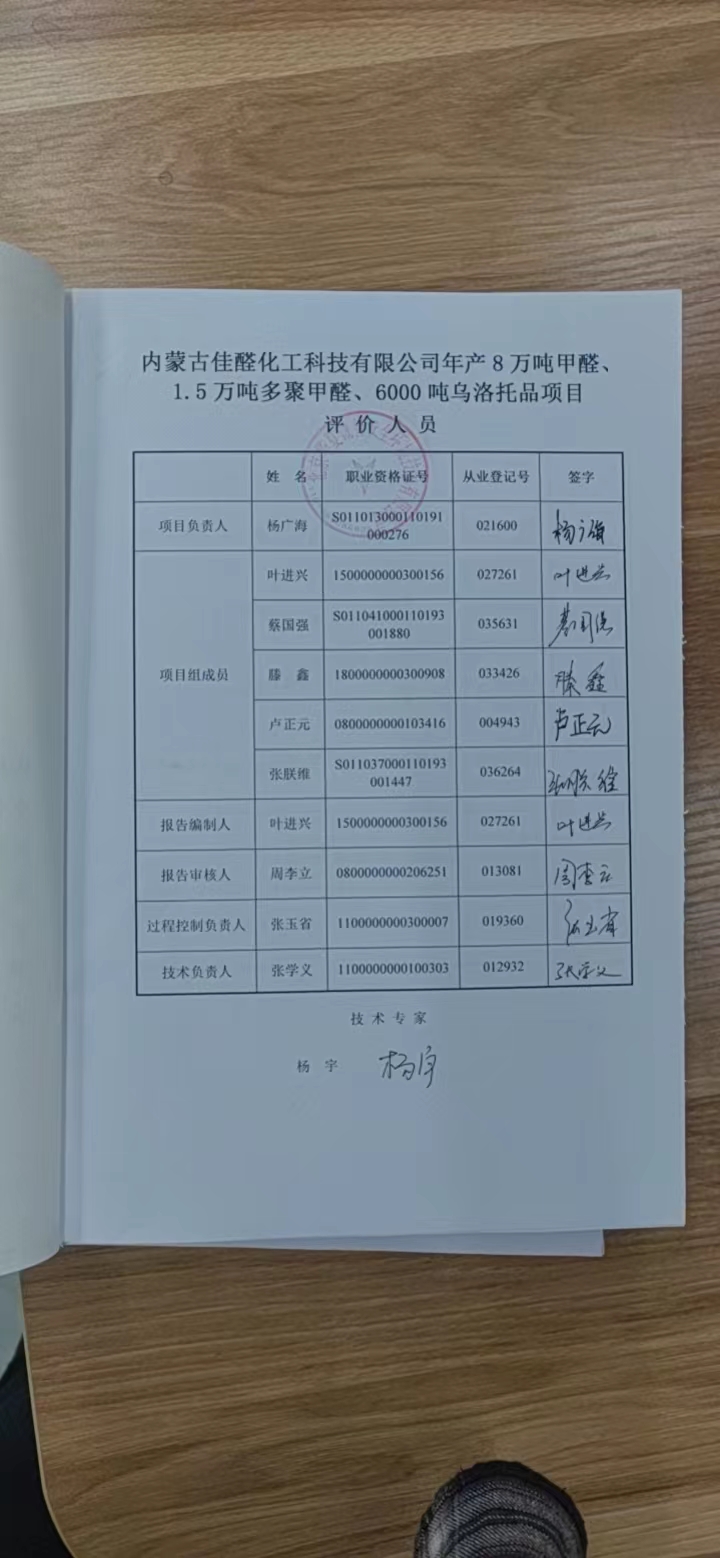 内蒙古佳醛化工科技有限公司年产8万吨甲醛、
1.5万吨多聚甲醛、6000吨乌洛托品项目
评价人员
姓 名 职业资格证号 从业登记号 签字
项目负责人 杨广海 S011013000110191000276 021600
叶进兴 1500000000300156 027261 叶进兴
蔡国强 S011041000110193001880 035631 蔡国强
项目组成员 滕 鑫 1800000000300908 033426 滕鑫
卢正元 0800000000103416 004943 卢正元
张朕维 S011037000110193001447 036264
报告编制人 叶进兴 1500000000300156 027261 叶进兴
报告审核人 周李立 0800000000206251 013081 周李立
过程控制负责人 张玉省 1100000000300007 019360 张玉省
技术负责人 张学义 1100000000100303 012932 张学义
技术专家
杨 宇 杨宇